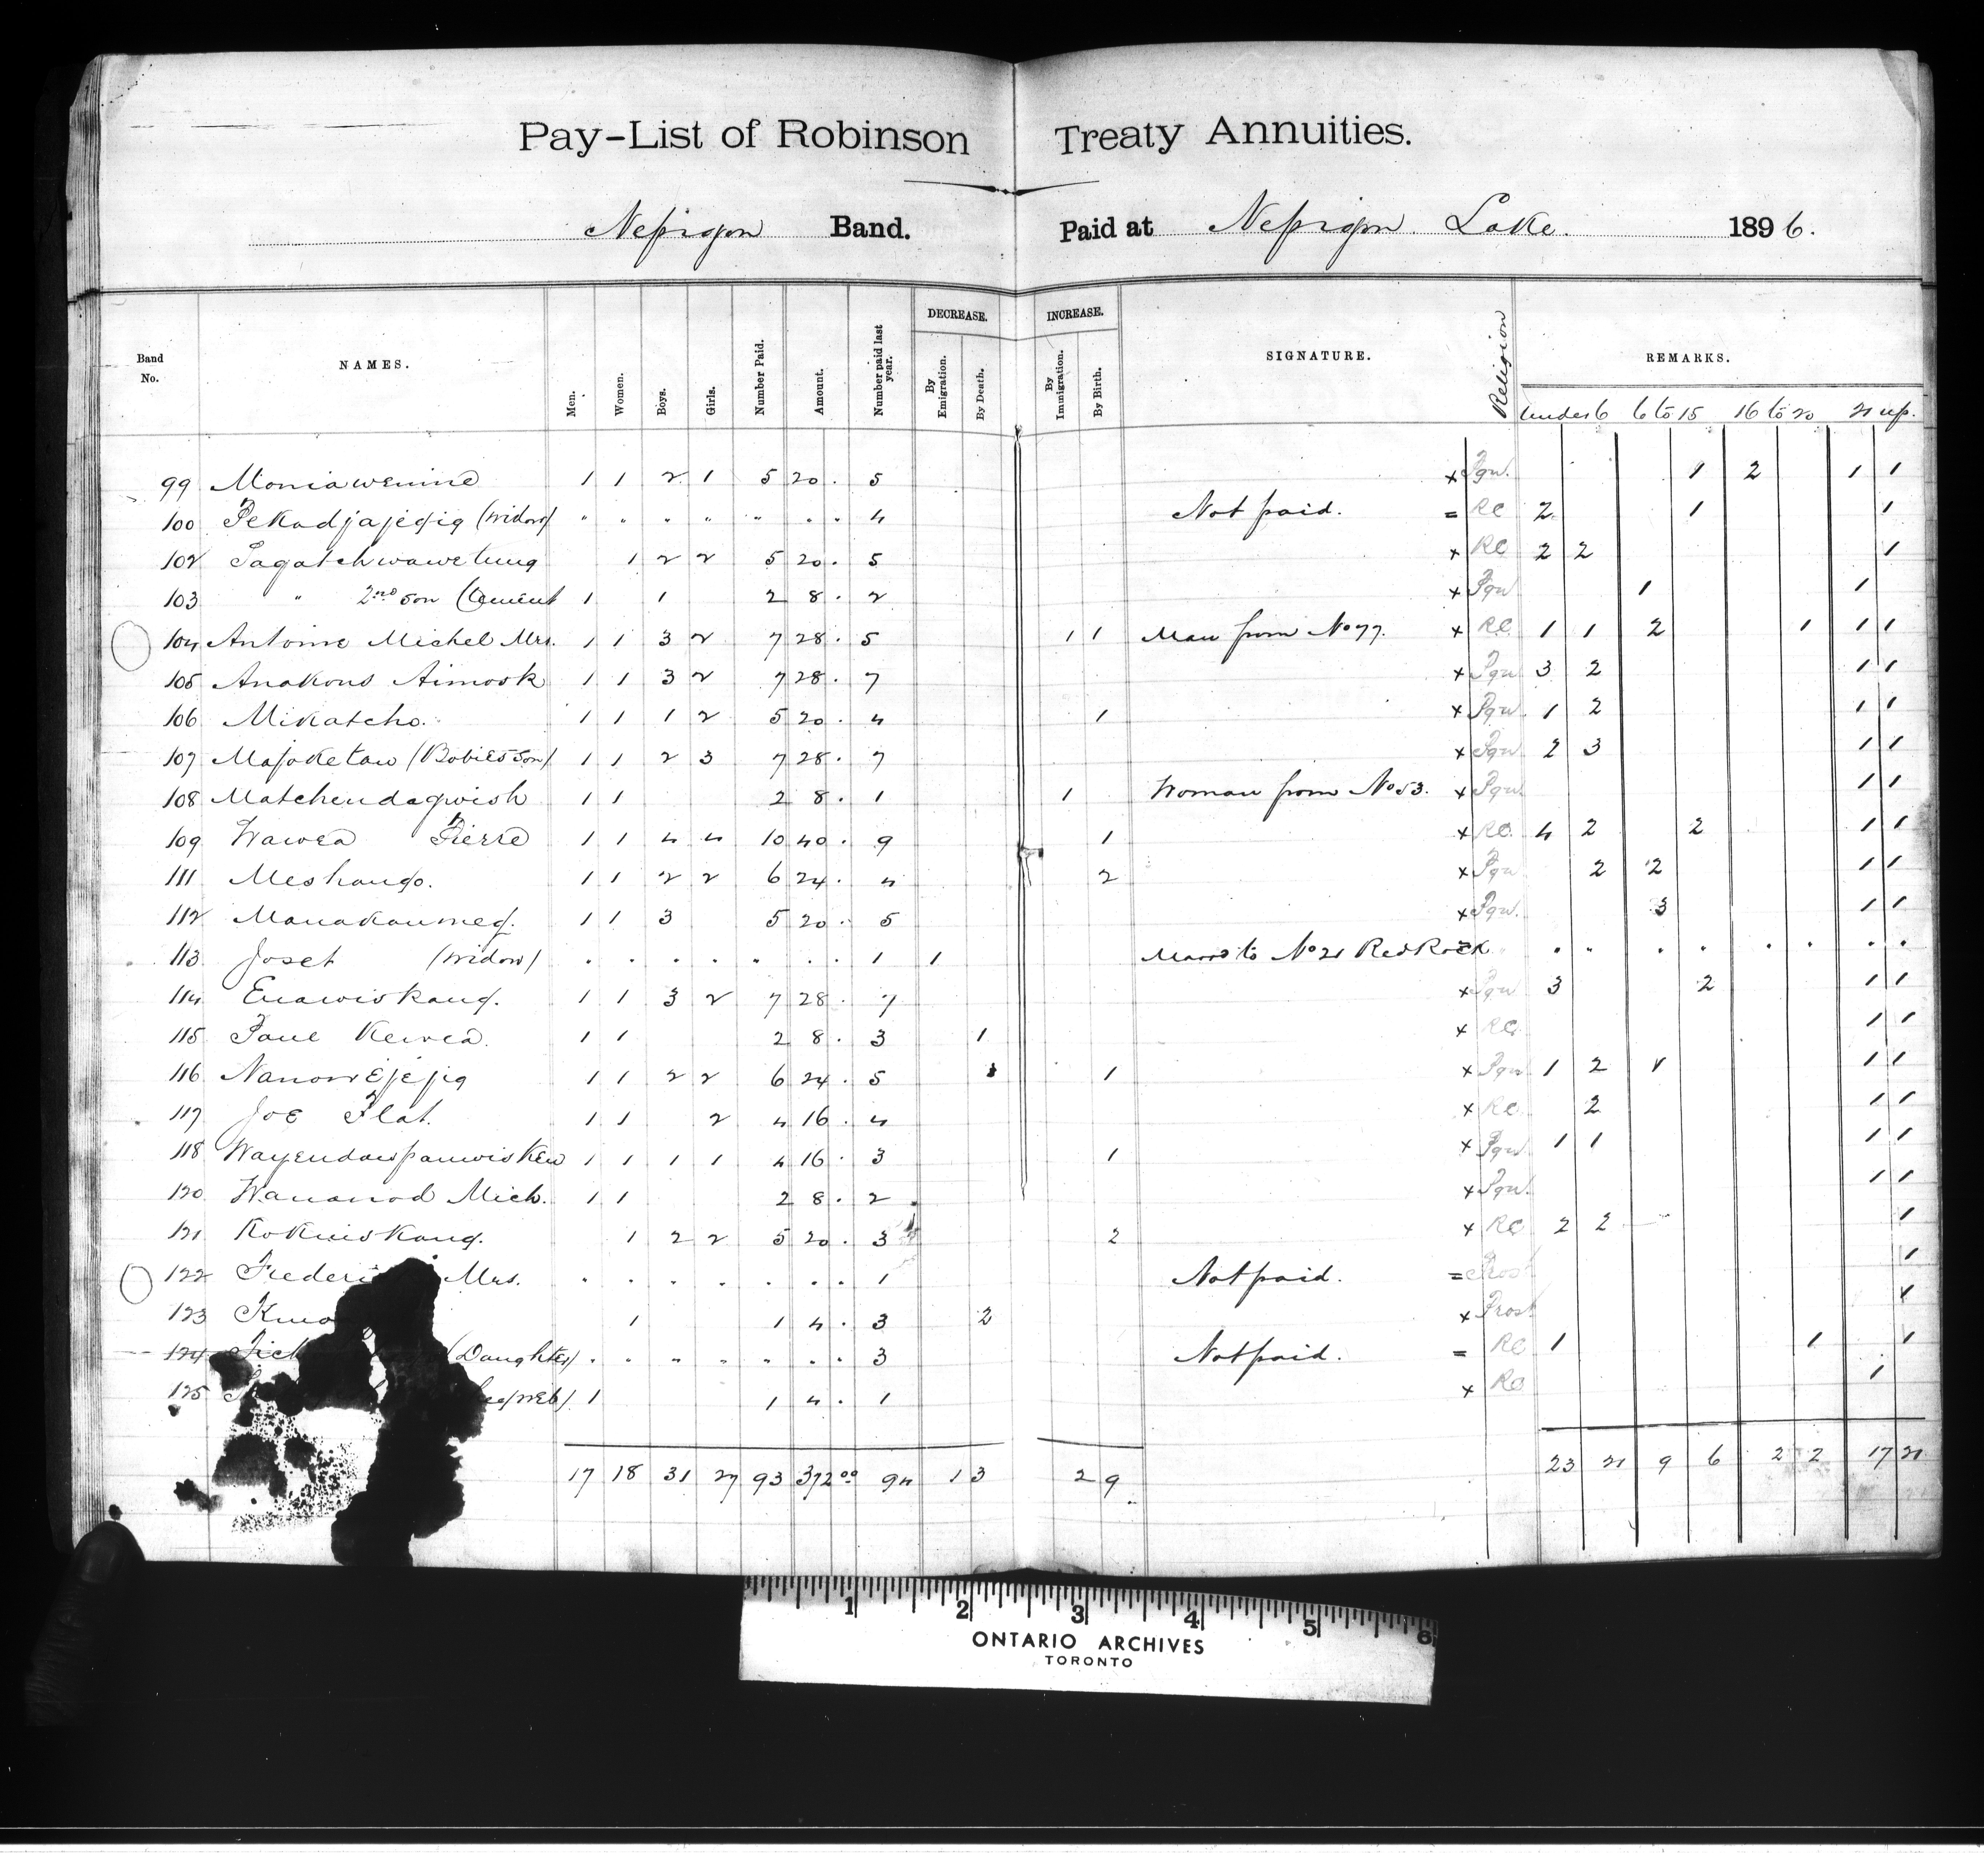 Pay-List of Robinson Treaty Annuities.
Nepigon Band. Paid at Nepigon Lake. 1896.
Band No. NAMES. Men. Women. Boys. Girls. Number Paid. Amount. Number paid last year. DECREASE. By Emigration. By Death. INCREASE. By Immigration. By Birth. SIGNATURE. Religion REMARKS.
under 6 6 to 15 16 to 20 21 up.
99 Moniawenine 1 1 2 1 5 20 . 5 x Pgn. 1 2 1 1
100 Pekadjajegig (Widow) " " " " " " " 4 Not paid. = RC 2 1 1
102 Sagatchwawetung 1 2 2 5 20 . 5 x RC 2 2 1
103 " 2nd Son (Clement 1 1 2 8 . 2 x Pgn 1 1
104 Antoine Michel Mrs. 1 1 3 2 7 28 . 5 1 1 Man from No 77. x RC 1 1 2 1 1 1
105 Anakons Aimosk 1 1 3 2 7 28 . 7 x Pgn 3 2 1 1
106 Mikatcho. 1 1 1 2 5 20 . 4 1 x Pgn 1 2 1 1
107 Majoketaw (Bobies Son) 1 1 2 3 7 28 . 7 x Pgn 2 3 1 1
108 Matchendagwish 1 1 2 8 . 1 1 Woman from No 53. x Pgn 1 1
109 Wawea Pierre 1 1 4 4 10 40 . 9 1 x RC. 4 2 2 1 1
111 Meshango. 1 1 2 2 6 24 . 4 2 x Pgn 2 2 1 1
112 Manakaumeg. 1 1 3 5 20 . 5 x Pgn. 3 1 1
113 Joset (Widow) . . . . " . . 1 1 Marrd to No 21 Red Rock . " . . . . . .
114 Enawiskang. 1 1 3 2 7 28 . 7 x Pgn 3 2 1 1
115 Paul Kewea. 1 1 2 8 . 3 1 x RC 1 1
116 Nanowejejig 1 1 2 2 6 24 . 5 1 x Pgn 1 2 1 1 1
117 Joe Flat. 1 1 2 4 16 . 4 x RC 2 1 1
118 Wayendawpanwisken 1 1 1 1 4 16 . 3 1 x Pgn 1 1 1 1
120 Wananod Mich. 1 1 2 8 . 2 x Pgn. 1 1
121 Kokwiskang. 1 2 2 5 20 . 3 2 x RC 2 2 1
122 Mrs. . . . . . . . 1 Not paid. = Prost 1
123 1 1 4 . 3 2 x Prost 1
124 (Daughter) . . " " " . . 3 Not paid. = RC 1 1 1
125 1 1 4 . 1 x RC 1
17 18 31 27 93 372 00 94 1 3 2 9 23 21 9 6 2 2 17 21
1 2 3 4 5 6
ONTARIO ARCHIVES
TORONTO